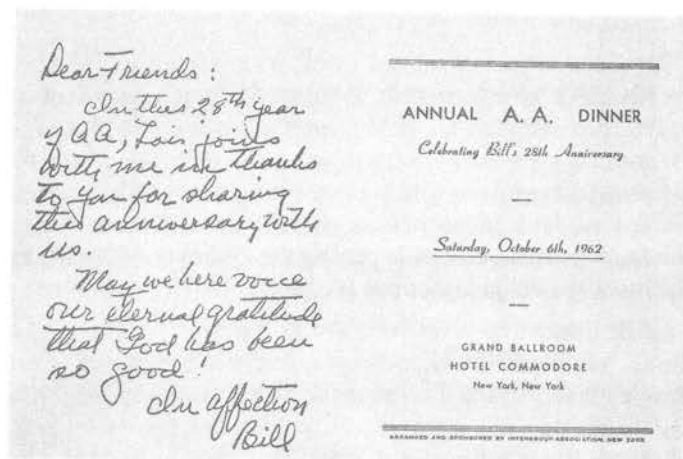 Dear Friends:
In this 28th year
of AA, Lois joins
with me in thanks
to you for sharing
this anniversary with
us.
May we here voice
our eternal gratitude
that God has been
so good!
In affection
Bill
ANNUAL A. A. DINNER
Celebrating Bill's 28th Anniversary
Saturday, October 6th, 1962
GRAND BALLROOM
HOTEL COMMODORE
New York, New York
ARRANGED AND SPONSORED BY INTERGROUP ASSOCIATION, NEW YORK